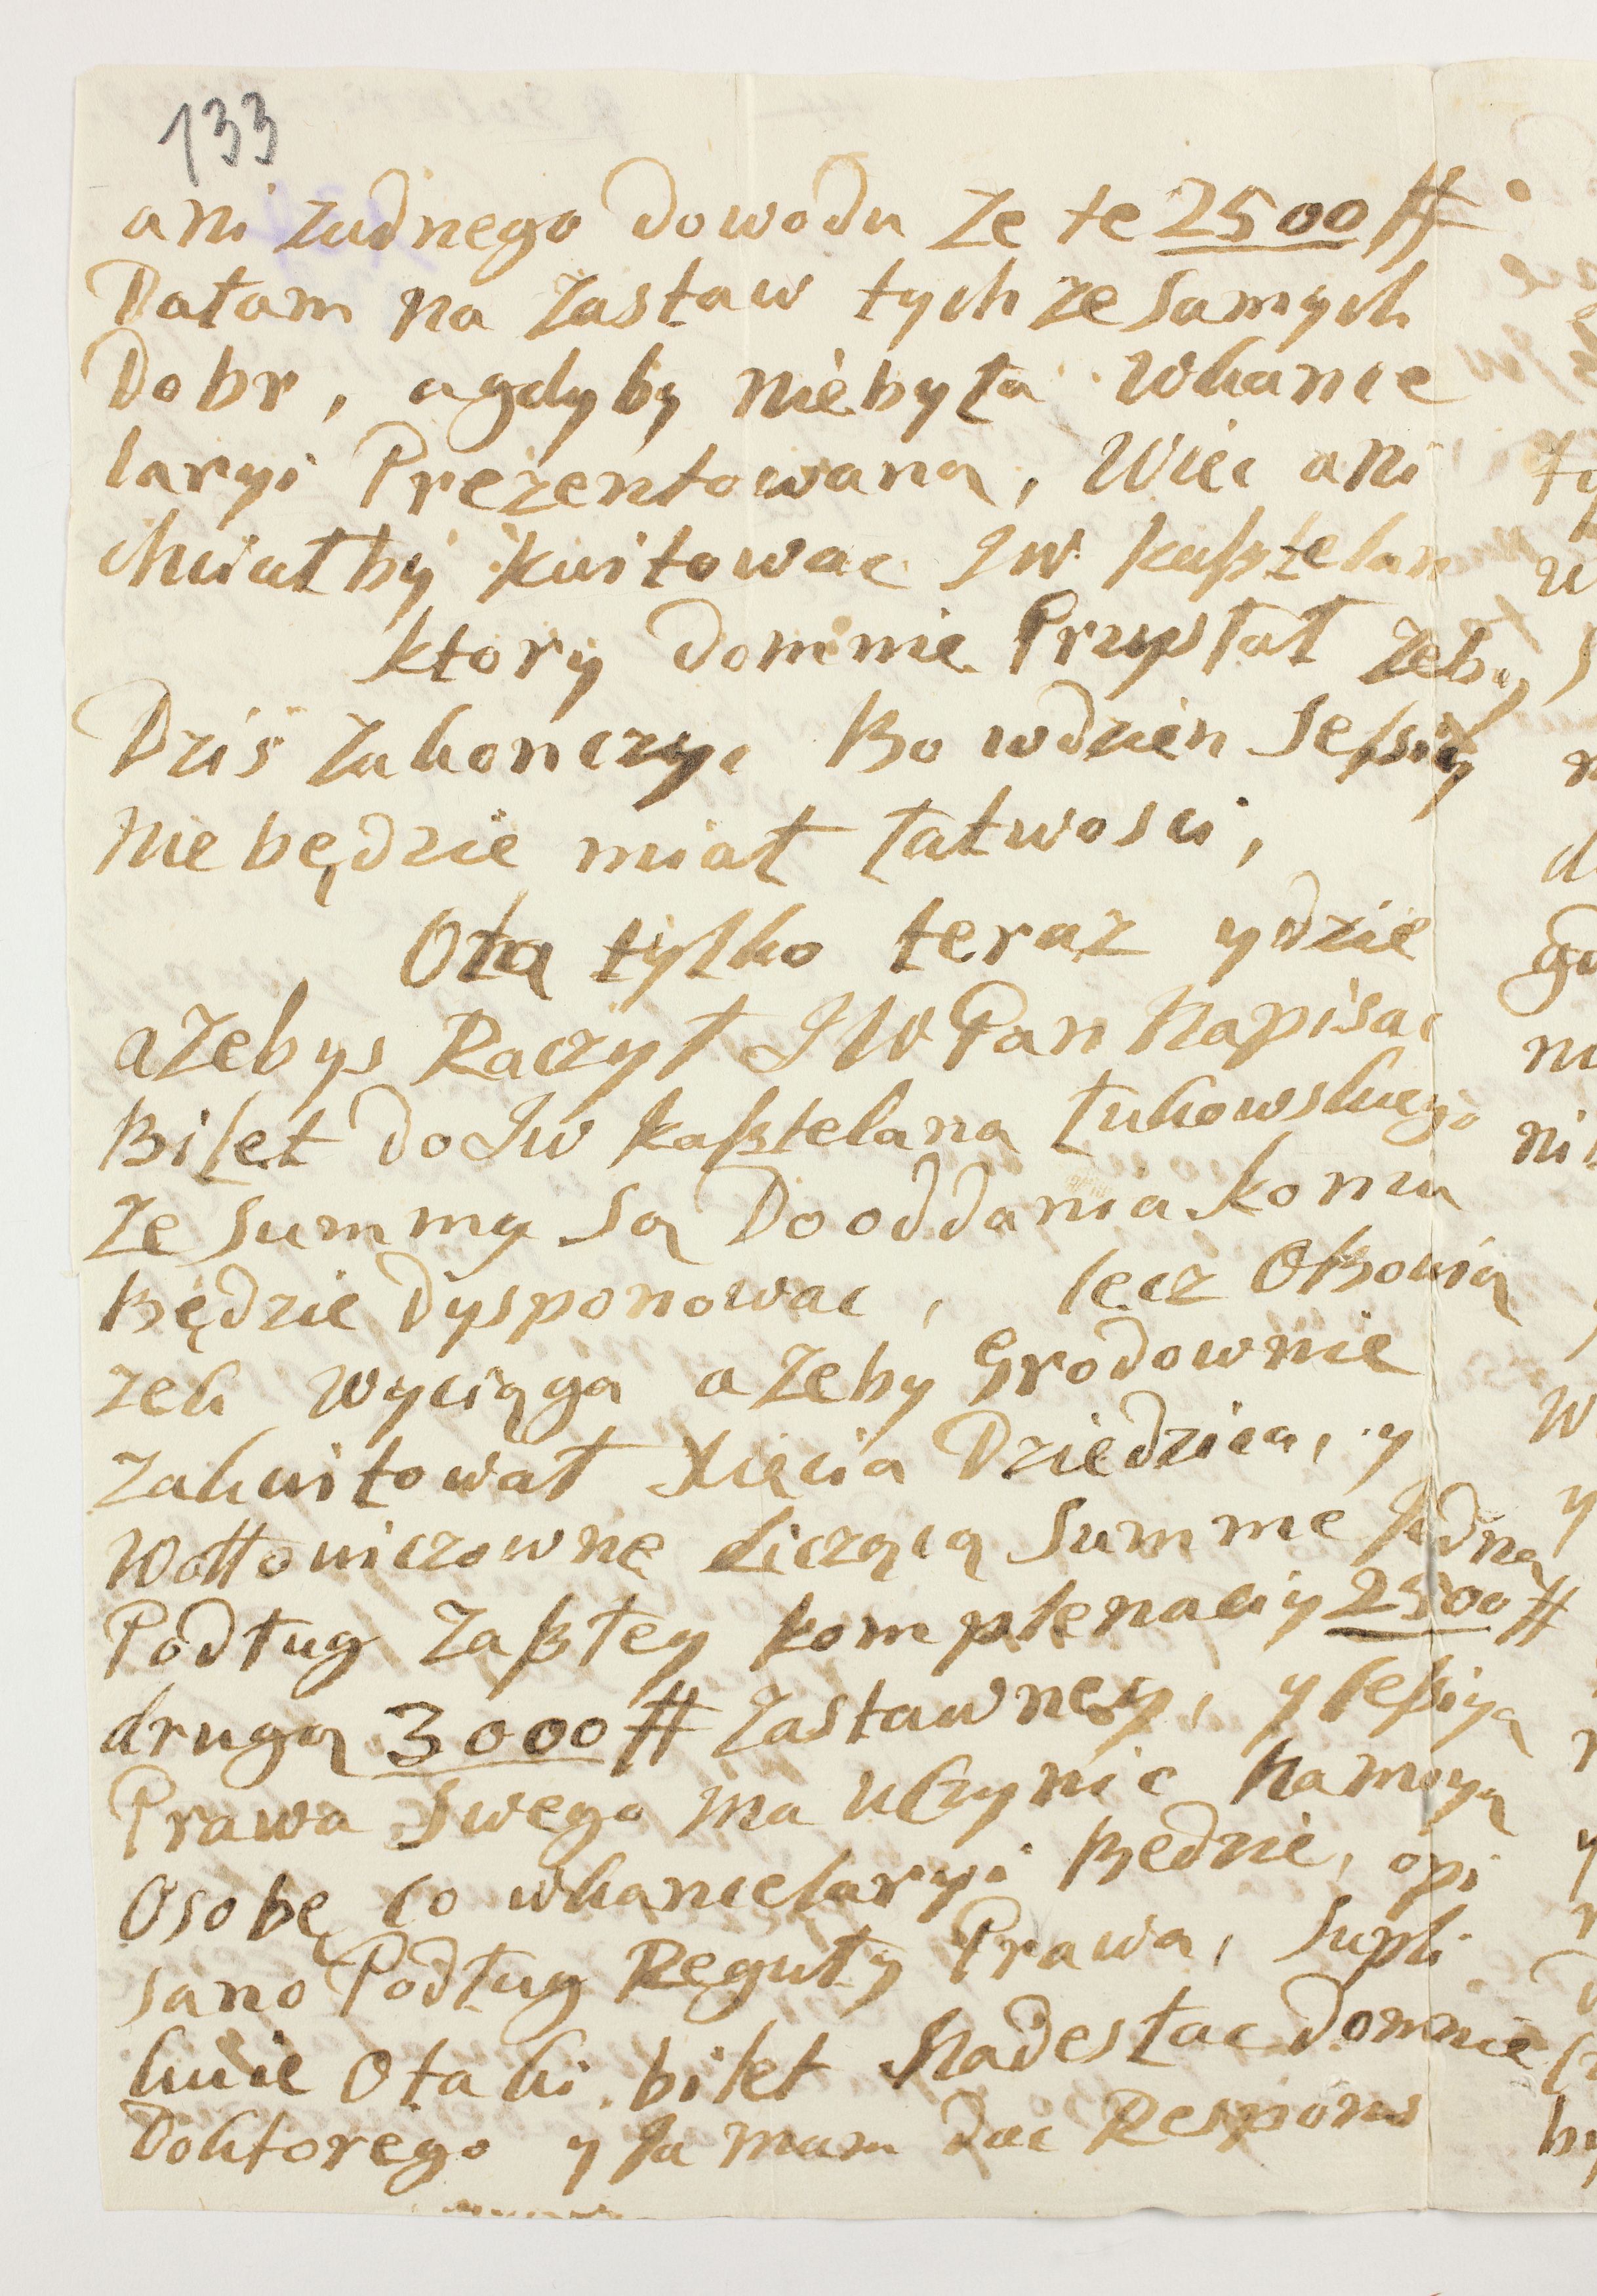 133
ani zadnego dowodu ze te 2500 #
Dałam na zastaw tych ze samych
Dobr, agdyby niebyła wkance
laryi Prezentowana, Wiec ani
chciałby kwitowac JW kasztelan
ktory domnie Przysłał zeby
Dzis zakonczyc Bo wdzien Sessiy
nie będzie miał łatwosci,
Otą tylko teraz ydzie
azebys Raczył JW Pan Napisac
Bilet do JW kasztelana Łukowskiego
ze summy są Do oddania komu
Będzie Dysponowac, lecz Obowią
zek wyciąga azeby Grodownie
zakwitował Xięcia Dziedzica, y
Wołłowiczownę Liczącą Summe Jedną
Podług zaszłey komplenaciy 2500 #
drugą 3000 # zastawney, y sessiyą
Prawa Swego ma uczynic Namoyą
Osobę co wkancelaryi Będzie, opi
sano Podług Reguły Prawa, Supli
kuie Otaki bilet Nadesłac domnie
Doktorego y Ja mam dac Respons